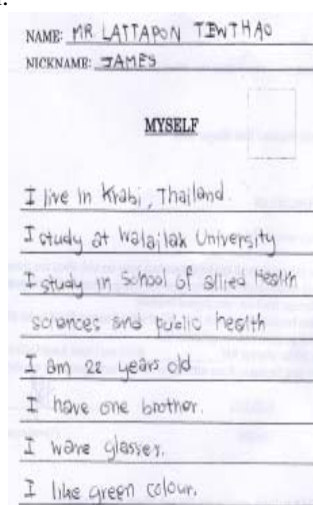 NAME: MR LATTAPON TEWTHAO
NICKNAME: JAMES
MYSELF
I live in Krabi, Thailand.
I study at Walailak University
I study in School of allied Health
sciences and public health
I am 22 years old
I have one brother.
I ware glasses.
I like green colour.